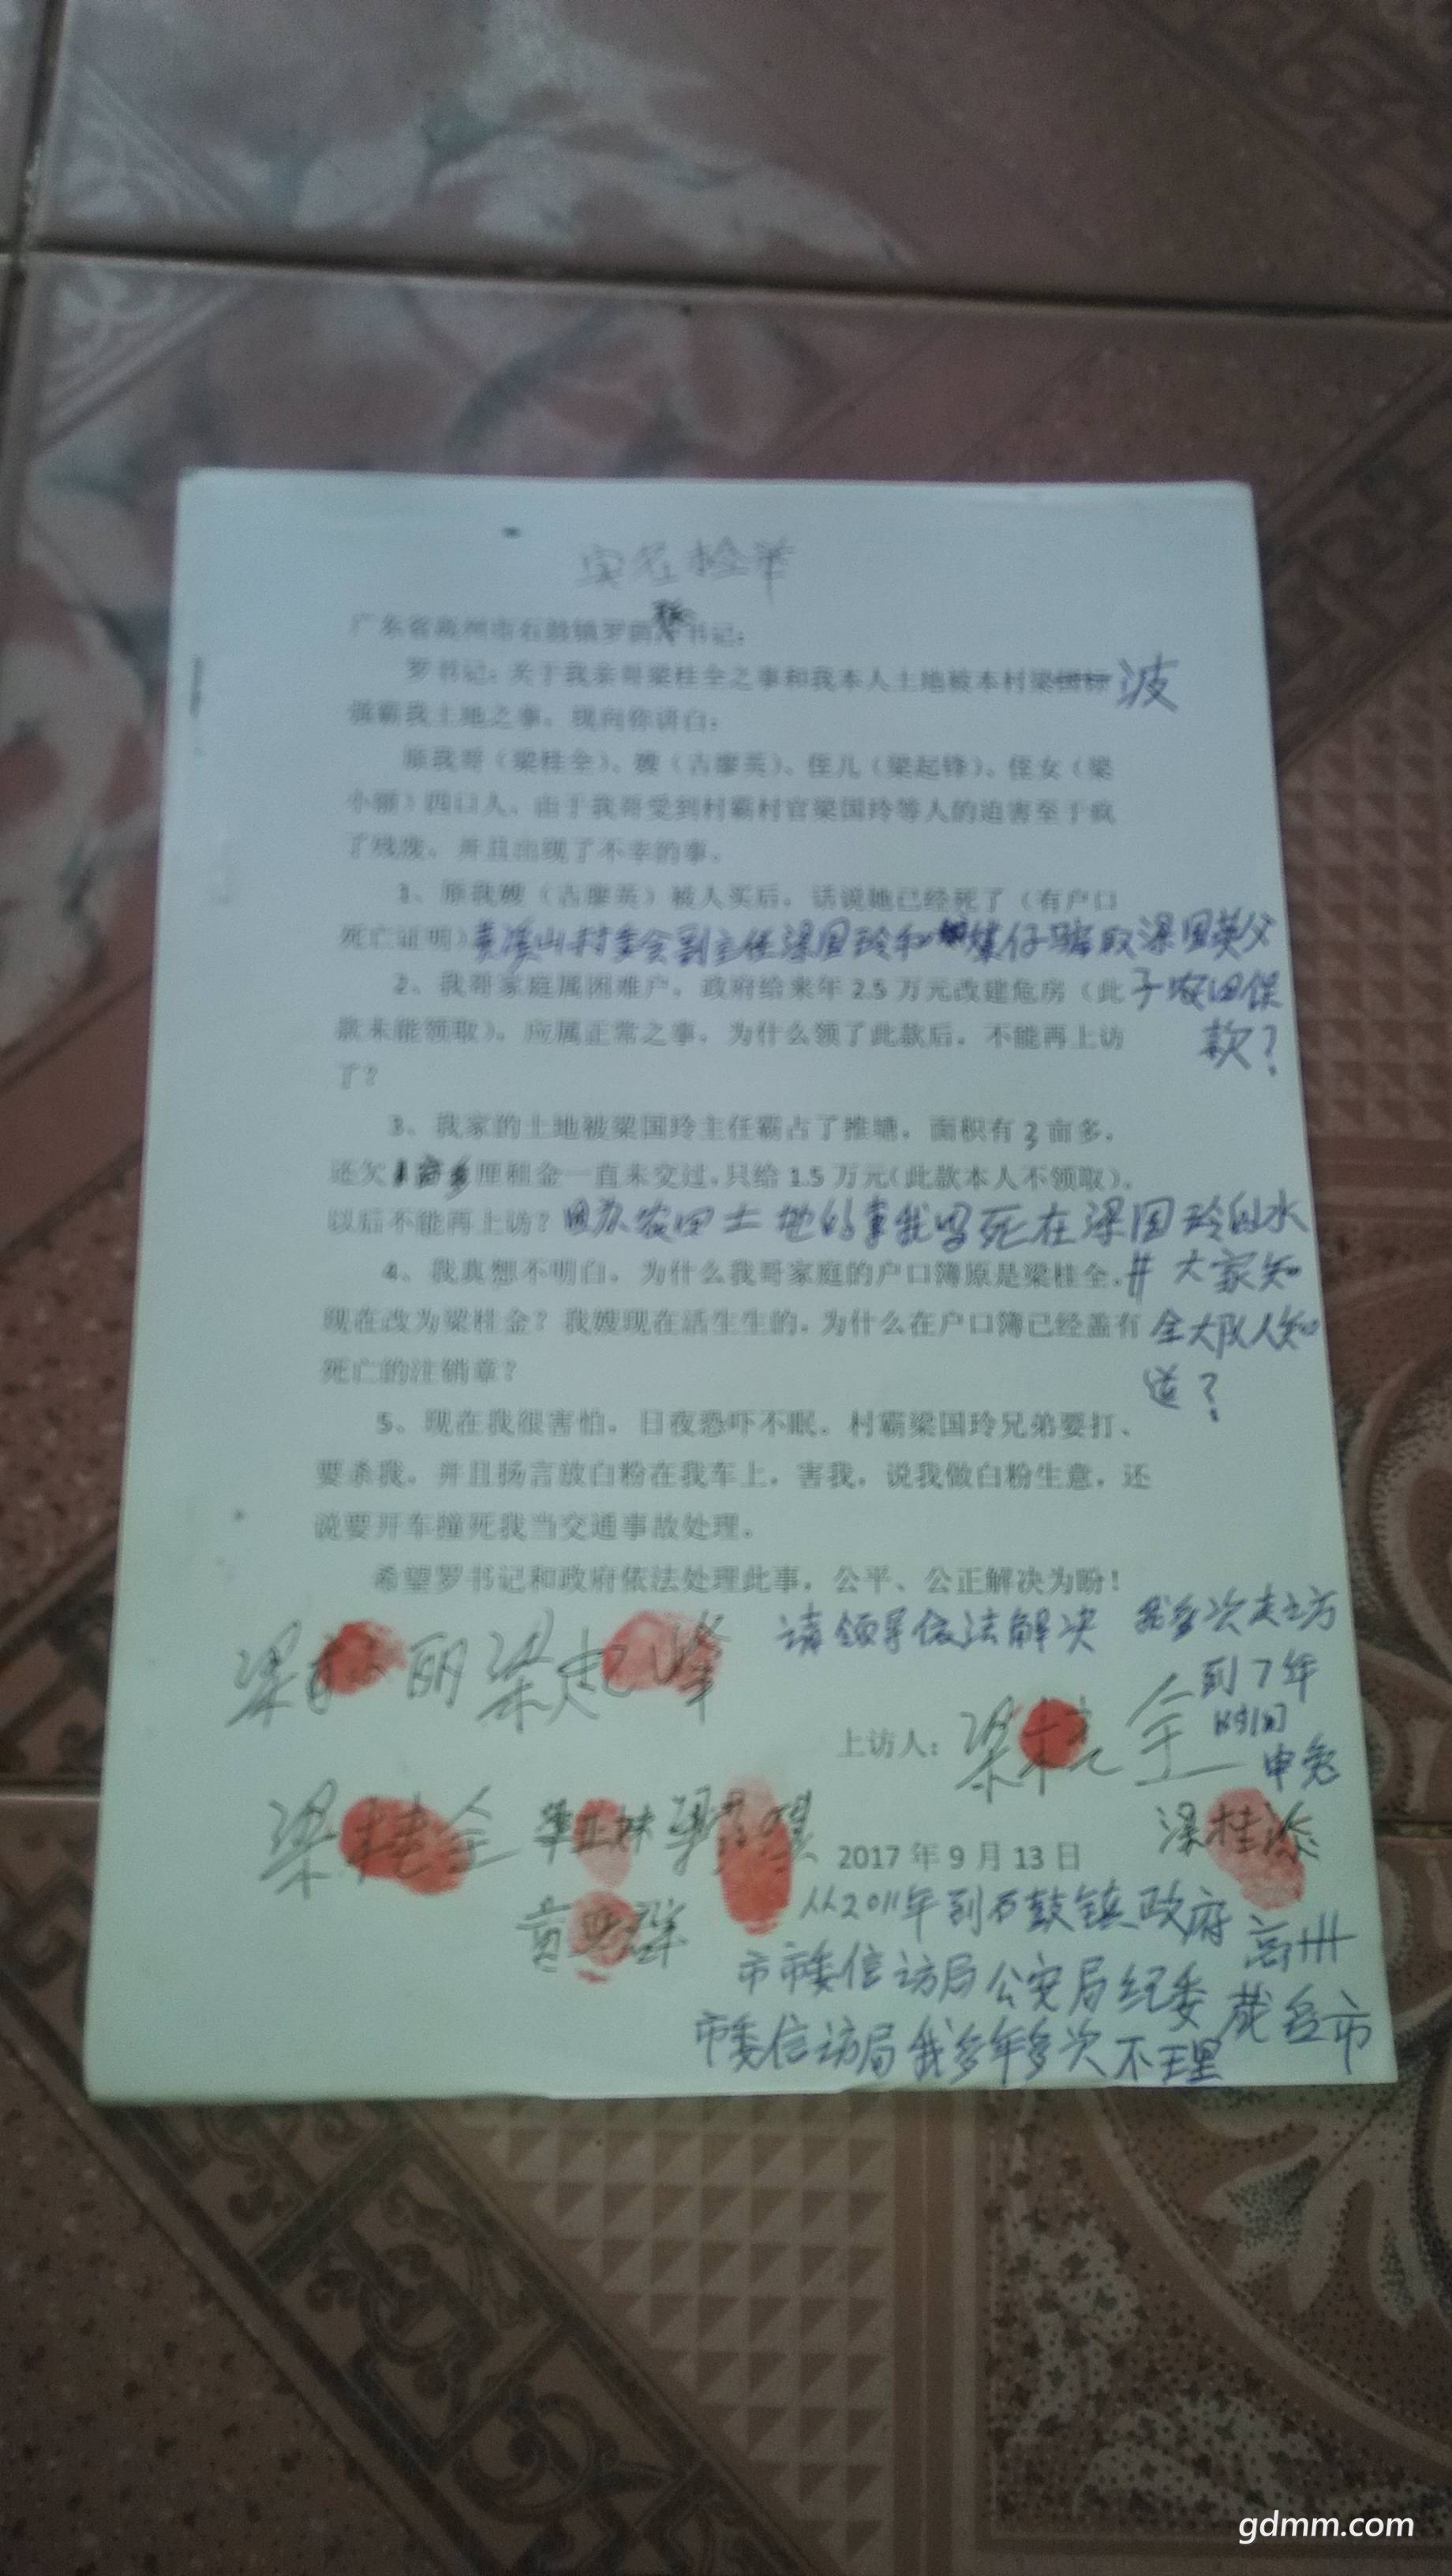 实名检举
广东省高州市石鼓镇罗 书记：
罗书记：关于我亲哥梁桂全之事和我本人土地被本村梁 波
强霸我土地之事。现向你讲白：
原我哥（梁桂全）、嫂（古廖英）、侄儿（梁起锋）、侄女（梁
小丽）四口人。由于我哥受到村霸村官梁国玲等人的迫害至于疯
了残废。并且出现了不幸的事。
1、原我嫂（古廖英）被人买后，话说她已经死了（有户口
死亡证明） 山村委会副主任梁国玲和 仔骗取梁国英父
子农田保
款？
2、我哥家庭属困难户，政府给来年2.5万元改建危房（此
款未能领取）。应属正常之事，为什么领了此款后，不能再上访
了？
3、我家的土地被梁国玲主任霸占了推塘，面积有3亩多，
还欠1亩多厘租金一直未交过，只给1.5万元（此款本人不领取）。
以后不能再上访？ 农田土地的事我 死在梁国玲的水
井大家知
全大队人知
道？
4、我真想不明白，为什么我哥家庭的户口簿原是梁桂全，
现在改为梁桂金？我嫂现在活生生的，为什么在户口簿已经盖有
死亡的注销章？
5、现在我很害怕，日夜恐吓不眠。村霸梁国玲兄弟要打、
要杀我。并且扬言放白粉在我车上，害我，说我做白粉生意，还
说要开车撞死我当交通事故处理。
希望罗书记和政府依法处理此事，公平、公正解决为盼！
请领导依法解决 我多次走上方
到7年
时间
申冤
梁 丽 梁起峰
上访人：梁桂全
梁桂全
2017年9月13日
梁桂
黄 群
从2011年到石鼓镇政府 高州
市市委信访局公安局纪委 茂名市
市委信访局我多年多次不理
gdmm.com